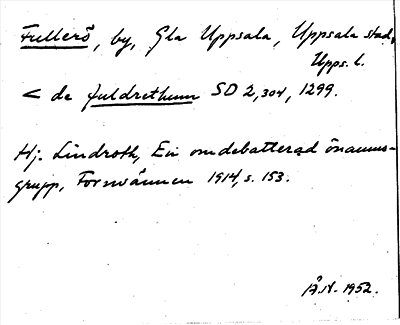 Fullerö, by, Gla Uppsala, Uppsala stad,
Upps. l.
< de fuldrethum SD 2, 304, 1299.
Hj. Lindroth, En omdebatterad önamns-
grupp, Fornvännen 1914, s. 153.
Å.N. 1952.